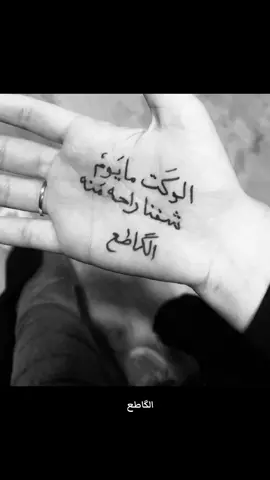 الوكَت مايَوم
شفنا راحه مَنه
الگاطع
الگاطع